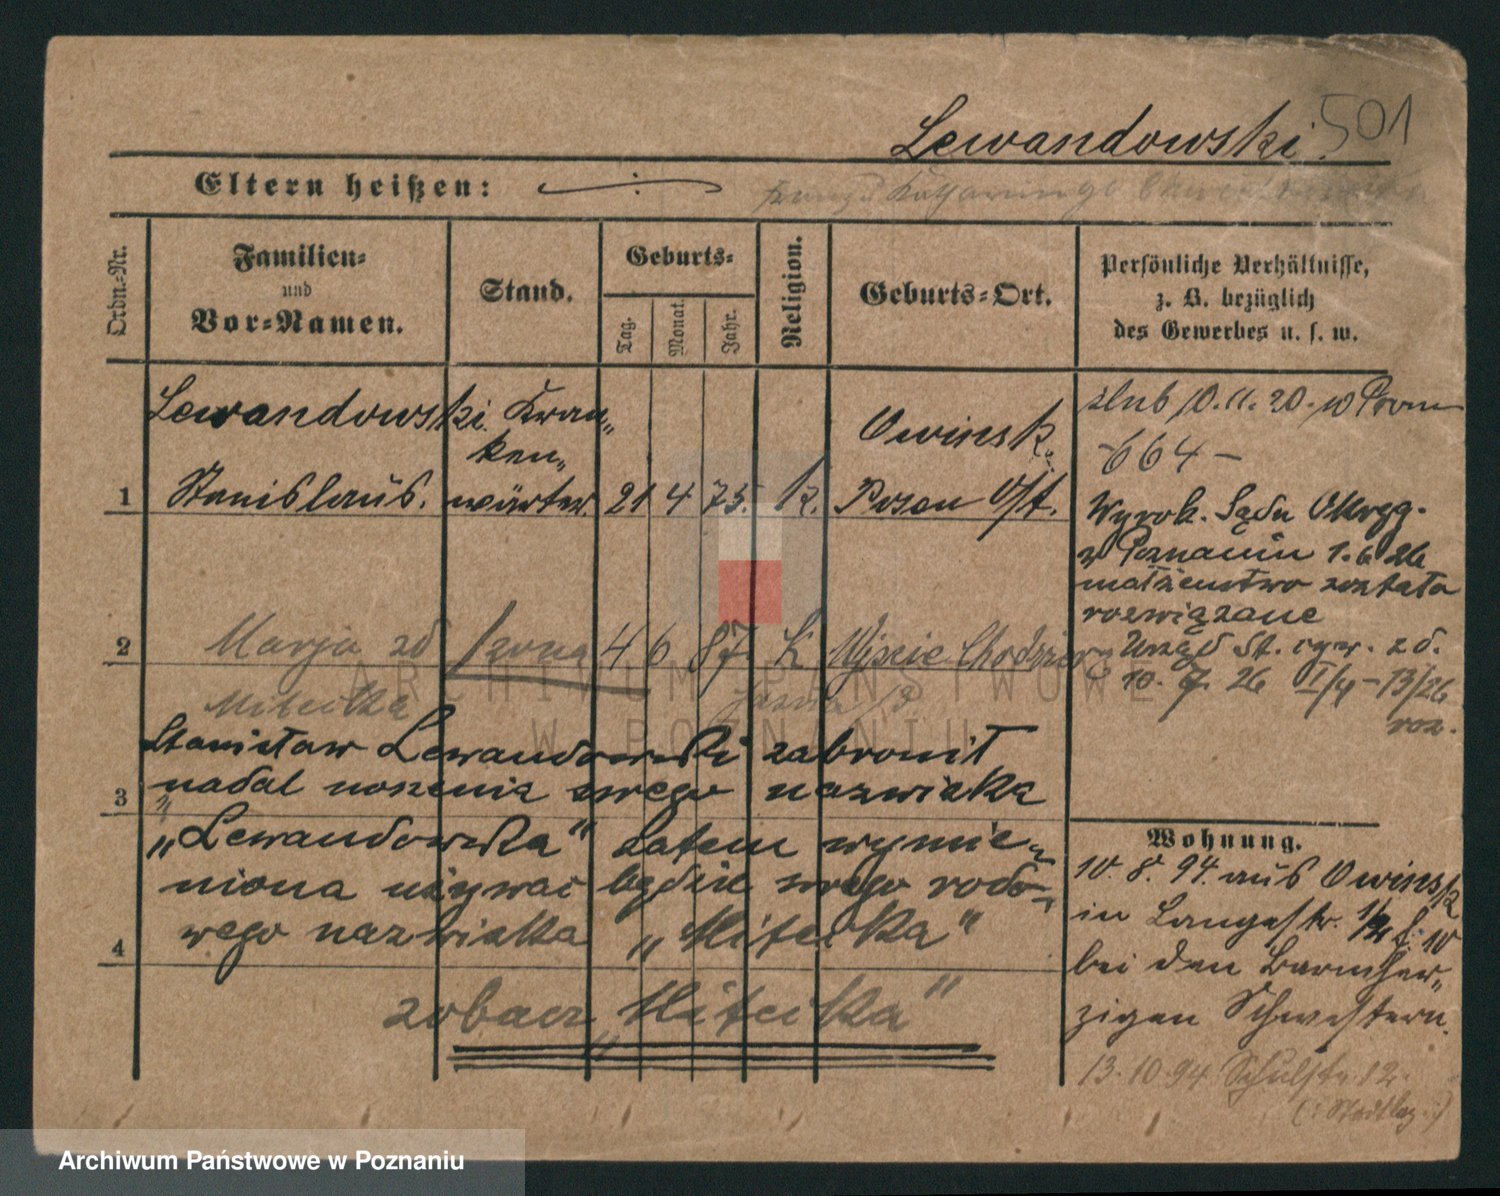 Lewandowski.
501
Eltern heißen:
Ordn.-Nr.
Familien-
und
Vor-Namen.
Stand.
Geburts-
Tag.
Monat.
Jahr.
Religion.
Geburts-Ort.
Persönliche Verhältnisse,
z. B. bezüglich
des Gewerbes u. s. w.
Lewandowski. Kran„
ken„
1 Stanislaus. wärter. 21 4 75. k. Owinsk.
Posen Ost.
2 Marja zd żona 4 6 87 k Ujście Chodzież
Mitecka
3
Stanisław Lewandowski zabronił
nadal noszenia swego nazwiska
„Lewandowska" zatem wymie-
niona używać będzie swego rodo-
4 wego nazwiska „Mitecka"
zobacz „Mitecka"
ślub 10.11.20. w
-664-
Wyrok. Sądu Okręg.
w Poznaniu 1.6 26
małżeństwo zostało
rozwiązane
Urząd St. cyw. zd.
10. 7. 26 I/4-13/26
roz.
Wohnung.
10. 8. 94. aus Owinsk
in Langestr.
bei den Barmher„
zigen Schwestern.
13.10 94 Schulstr. 12.
(: Stadtlaz. :)
ARCHIWUM PAŃSTWOWE
W POZNANIU
Archiwum Państwowe w Poznaniu